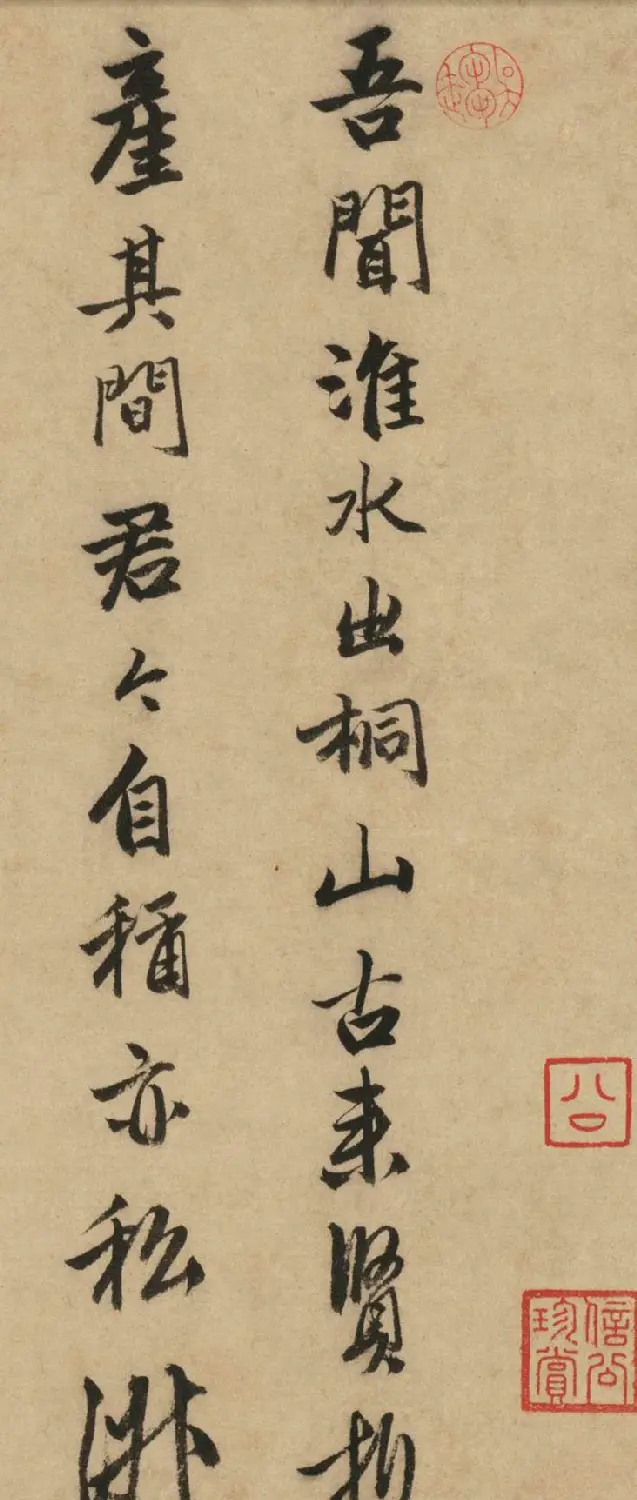 吾聞淮水出桐山古来賢
產其間君今自稱亦私
公
信公珍賞